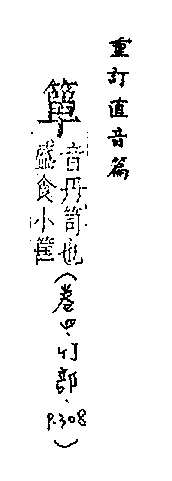 重訂直音篇
簞
音丹笥也
盛食小筐
(卷四.竹部.
P.308)